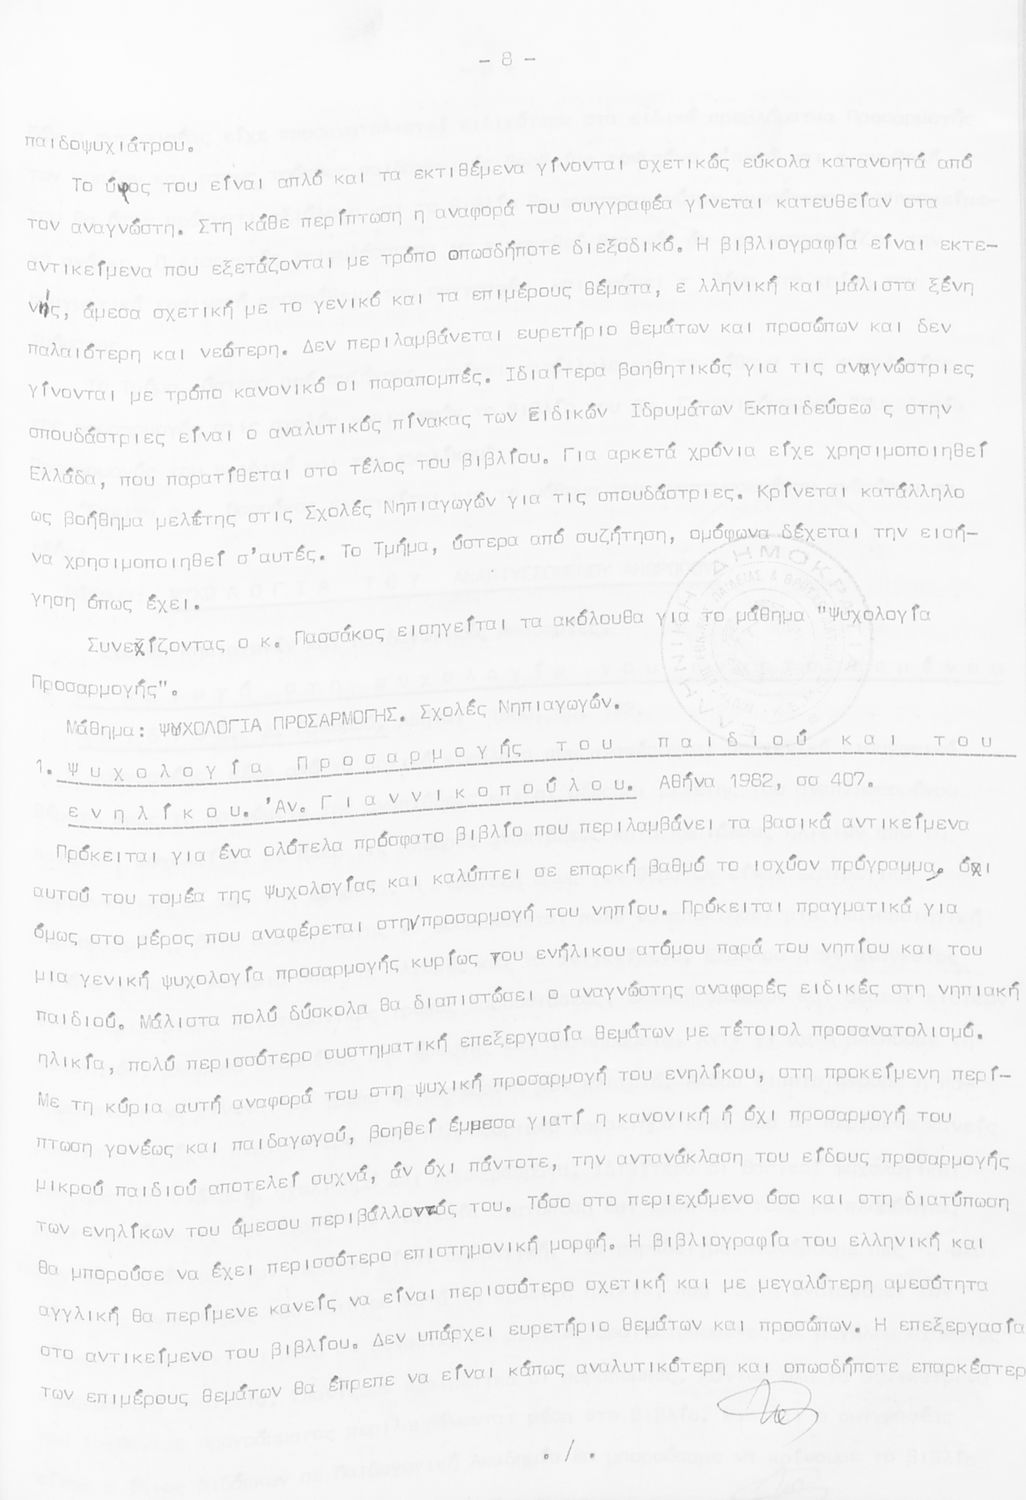 - 8 -
παιδοψυχιάτρου.
Το ύφος του είναι απλό και τα εκτιθέμενα γίνονται σχετικώς εύκολα κατανοητά από
τον αναγνώστη. Στη κάθε περίπτωση η αναφορά του συγγραφέα γίνεται κατευθείαν στα
αντικείμενα που εξετάζονται με τρόπο οπωσδήποτε διεξοδικό. Η βιβλιογραφία είναι εκτε-
νής, άμεσα σχετική με το γενικό και τα επιμέρους θέματα, ε λληνική και μάλιστα ξένη
παλαιότερη και νεότερη. Δεν περιλαμβάνεται ευρετήριο θεμάτων και προσώπων και δεν
γίνονται με τρόπο κανονικό οι παραπομπές. Ιδιαίτερα βοηθητικός για τις αναγνώστριες
σπουδάστριες είναι ο αναλυτικός πίνακας των Ειδικών Ιδρυμάτων Εκπαιδεύσεω ς στην
Ελλάδα, που παρατίθεται στο τέλος του βιβλίου. Για αρκετά χρόνια είχε χρησιμοποιηθεί
ως βοήθημα μελέτης στις Σχολές Νηπιαγωγών για τις σπουδάστριες. Κρίνεται κατάλληλο
να χρησιμοποιηθεί σ'αυτές. Το Τμήμα, ύστερα από συζήτηση, ομόφωνα δέχεται την εισή-
γηση όπως έχει.
Συνεχίζοντας ο κ. Πασσάκος εισηγείται τα ακόλουθα για το μάθημα "Ψυχολογία
Προσαρμογής".
Μάθημα: ΨΥΧΟΛΟΓΙΑ ΠΡΟΣΑΡΜΟΓΗΣ. Σχολές Νηπιαγωγών.
1. Ψυχολογία Προσαρμογής του παιδιού και του
ενηλίκου. 'Αν. Γιαννικοπούλου. Αθήνα 1982, σσ 407.
Πρόκειται για ένα ολότελα πρόσφατο βιβλίο που περιλαμβάνει τα βασικά αντικείμενα
αυτού του τομέα της Ψυχολογίας και καλύπτει σε επαρκή βαθμό το ισχύον πρόγραμμα, όχι
όμως στο μέρος που αναφέρεται στην προσαρμογή του νηπίου. Πρόκειται πραγματικά για
μια γενική ψυχολογία προσαρμογής κυρίως του ενήλικου ατόμου παρά του νηπίου και του
παιδιού. Μάλιστα πολύ δύσκολα θα διαπιστώσει ο αναγνώστης αναφορές ειδικές στη νηπιακή
ηλικία, πολύ περισσότερο συστηματική επεξεργασία θεμάτων με τέτοιολ προσανατολισμό.
Με τη κύρια αυτή αναφορά του στη ψυχική προσαρμογή του ενηλίκου, στη προκείμενη περί-
πτωση γονέως και παιδαγωγού, βοηθεί έμμεσα γιατί η κανονική ή όχι προσαρμογή του
μικρού παιδιού αποτελεί συχνά, άν όχι πάντοτε, την αντανάκλαση του είδους προσαρμογής
των ενηλίκων του άμεσου περιβάλλοντός του. Τόσο στο περιεχόμενο όσο και στη διατύπωση
θα μπορούσε να έχει περισσότερο επιστημονική μορφή. Η βιβλιογραφία του ελληνική και
αγγλική θα περίμενε κανείς να είναι περισσότερο σχετική και με μεγαλύτερη αμεσότητα
στο αντικείμενο του βιβλίου. Δεν υπάρχει ευρετήριο θεμάτων και προσώπων. Η επεξεργασία
των επιμέρους θεμάτων θα έπρεπε να είναι κάπως αναλυτικότερη και οπωσδήποτε επαρκέστερ
. / .